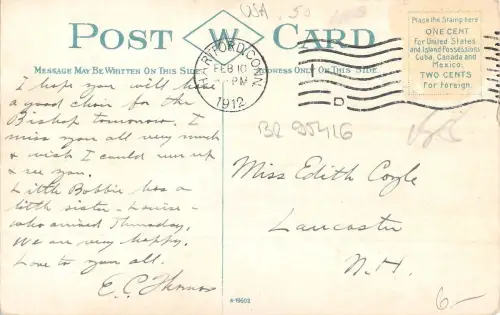 USA .50
POST W CARD
MESSAGE MAY BE WRITTEN ON THIS SIDE
ADDRESS ONLY ON THIS SIDE
HARTFORD, CONN.
FEB 10
PM
1912
D
Place the Stamp here
ONE CENT
for United States
and Island Possessions
Cuba, Canada and
Mexico.
TWO CENTS
For Foreign.
I hope you will have
a good choir for the
Bishop tomorrow. I
miss you all very much
& wish I could run up
& see you.
Little Bobbie has a
little sister - Louise -
who arrived Thursday.
We are very happy.
Love to you all.
E. C. Thomas
BR 95416
Miss Edith Coyle
Lancaster
N.H.
6.-